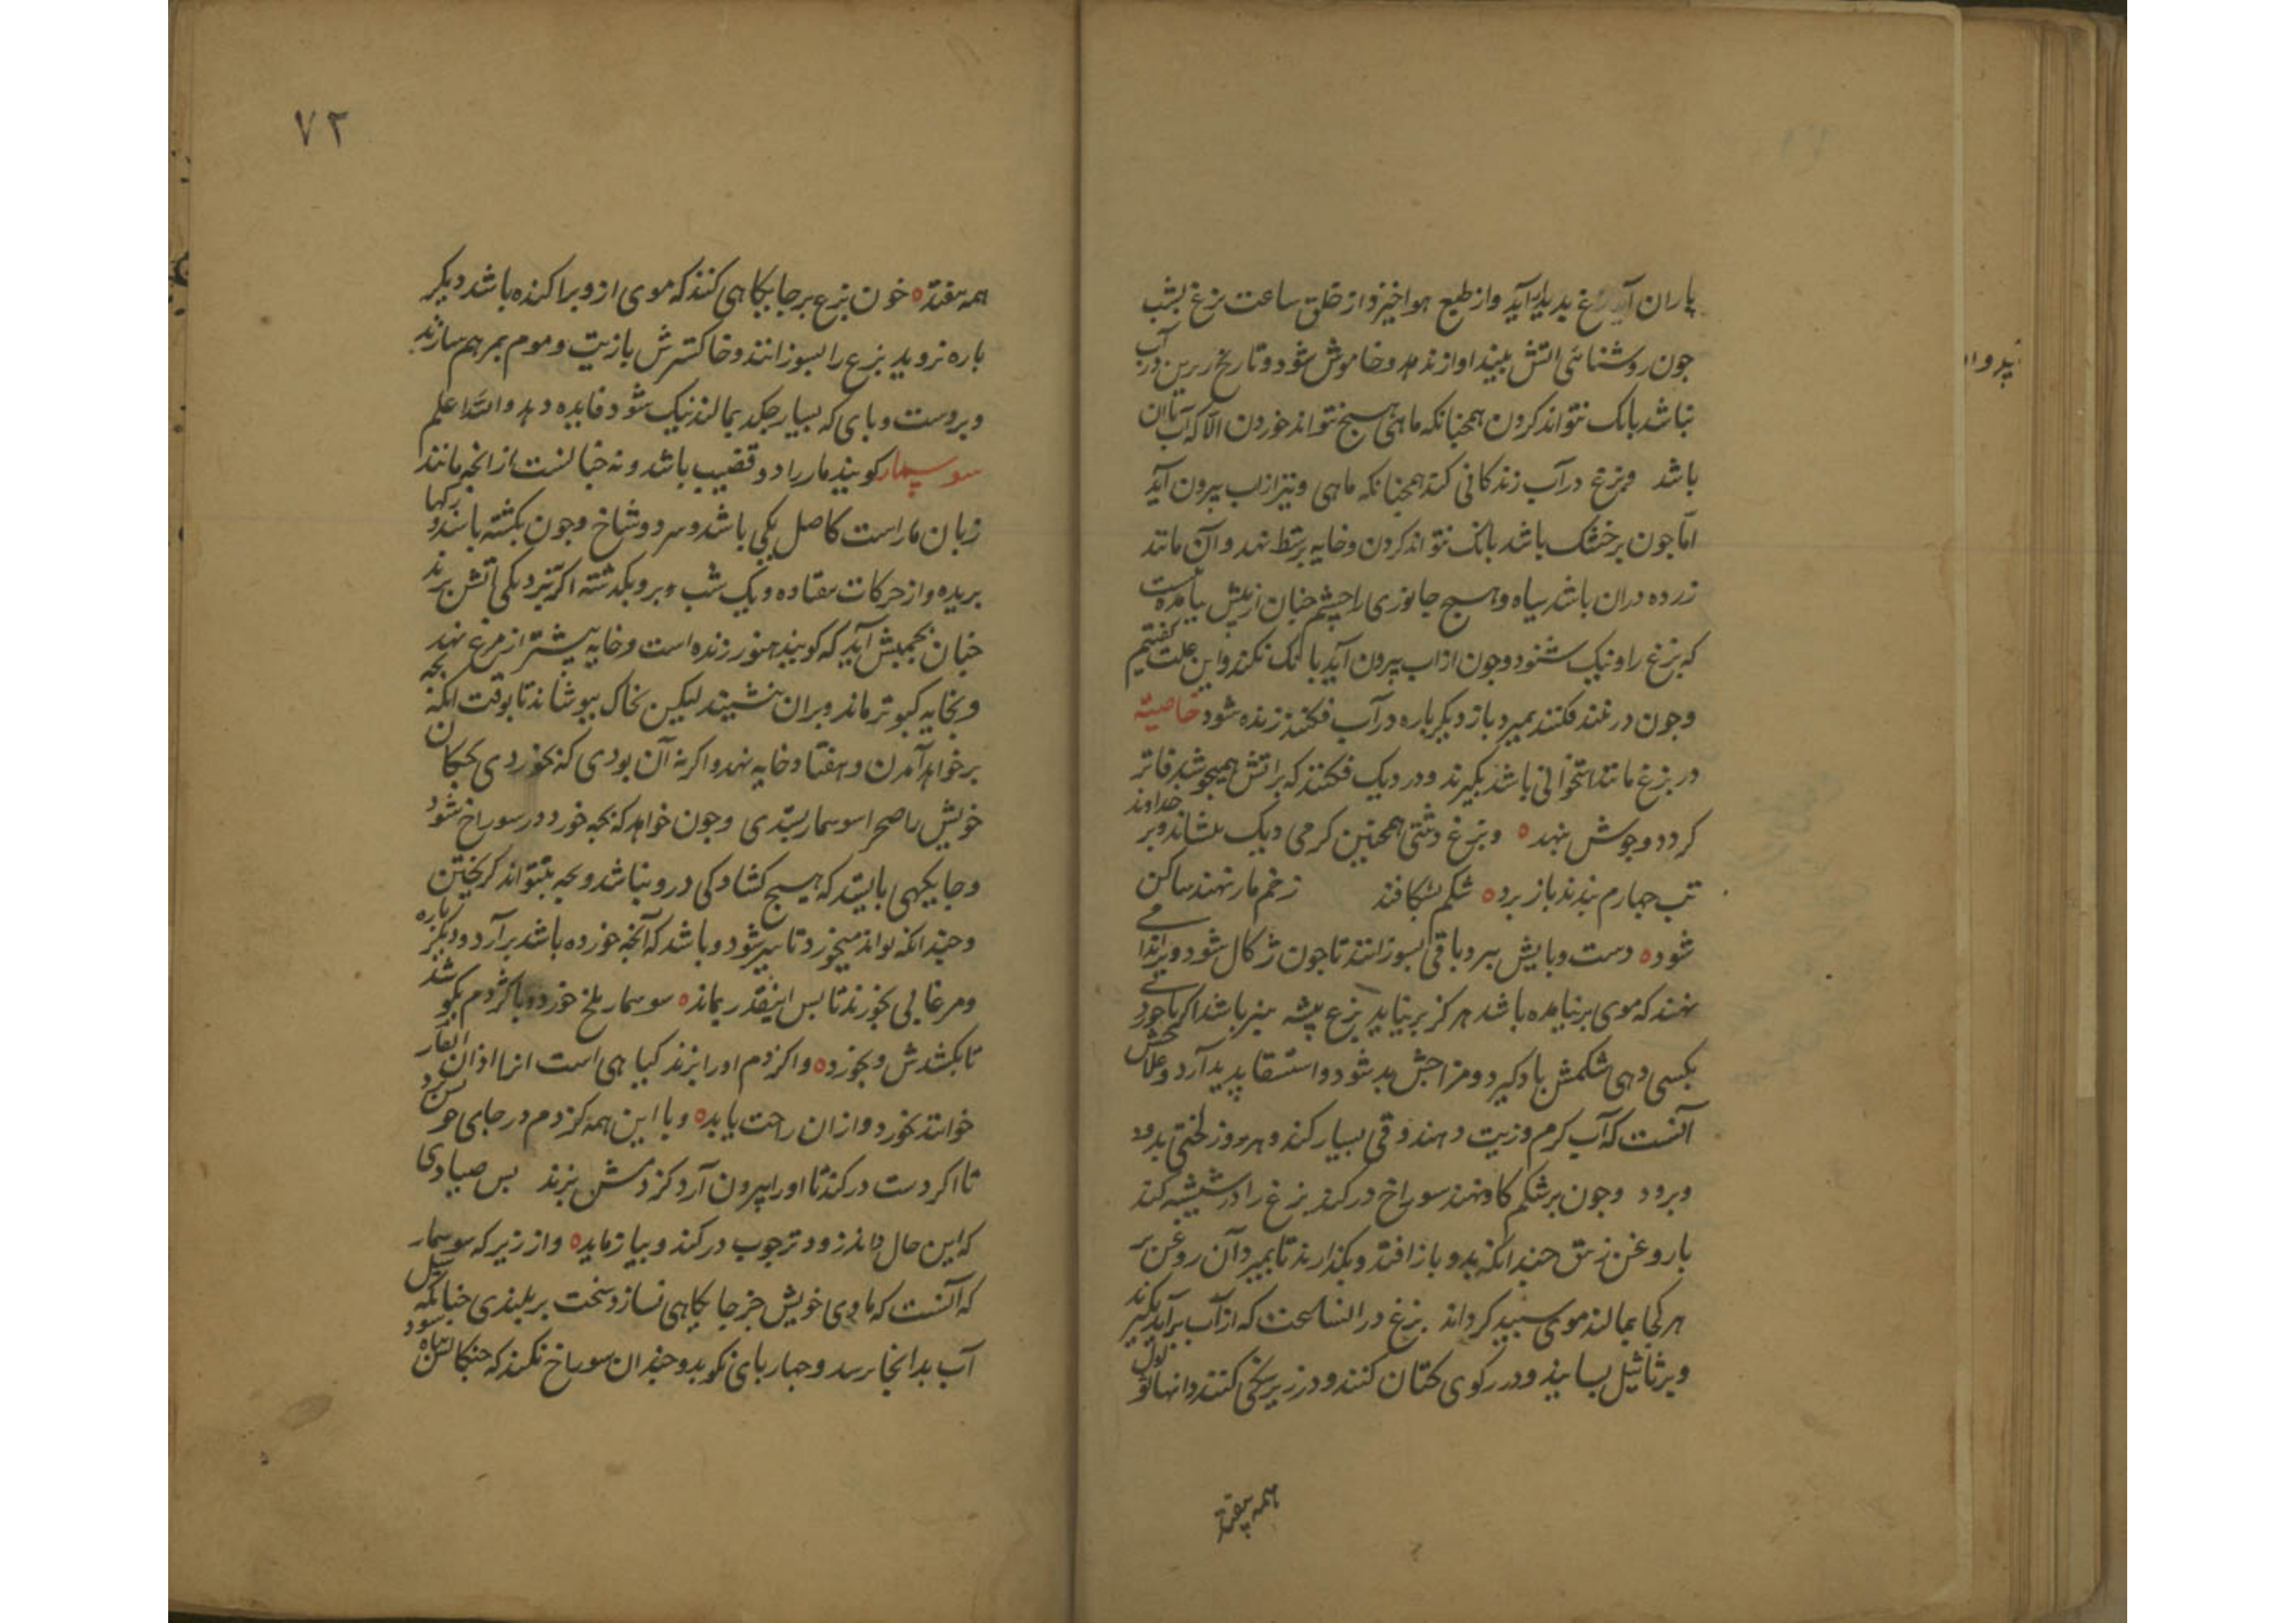 باران آید بزغ بدیدار آید و از طبع هوا خیزد از خلق ساعت بزغ بشب
جون روشنائی اتش بیند اواز ندهد و خاموش شود و تا زنخ زیرین در آب
نباشد بانک نتواند کردن همجنانکه ماهی هیچ نتواند خوردن الا که آب با آن
باشد و بزغ در آب زندکانی کند همجنانکه ماهی و نیز از اب بیرون آید
اما جون بر خشک باشد بانک نتواند کردن و خایه بر شط نهد و آن مانند
زرده دران باشد سیاه و هیچ جانوری را چشم جنان از پیش نیامده است
که بزغ را و نیک شنود و جون از اب بیرون آید بانک نکند و این علت کفتیم
و جون در فکنند بمیرد باز دیکر باره در آب فکنند زنده شود خاصیته
در بزغ مانند استخوانی باشد بکیرند و در دیک فکنند که بر اتش همیجوشد فاتر
کردد و جوش بنهد ٥ و بزغ دشتی همجنین کرمی دیک بنشاند و بر خداوند
تب جهارم بندند باز برد ٥ شکم بشکافند زخم مار نهند ساکن
شود ٥ دست و پایش ببرد و باقی بسوزانند تا جون زکال شود و برانجا می
نهند که موی برنیامده باشد هرکز برنیاید بزغ بیشه نیز باشد اکر
بکسی دهی شکمش باد کیرد و مزاجش بد شود و استسقا پدید آرد و علاجش
آنست که آب کرم و زیت دهند و قی بسیار کند و هر روز لختی بدود
و برود و جون بر شکم کاو نهند سوراخ در کند بزغ را در شیشه کند
با روغن زیبق جندانکه بدو باز افتد و بکذارند تا بمیرد آن روغن بر
هر کجا بمالند موی سپید کرداند بزغ در آن ساعت که از آب برآید بکیرند
و بساینند و در رکوی کتان کنند و در زیر یخی کنند
همه بیفتد
۷۳
همه بیفتد ٥ خون بزغ بر جایکاهی کنند که موی ازو براکنده باشد دیکر
باره نروید بزغ را بسوزانند و خاکسترش با زیت و موم بمرهم سازند
و بر دست و پای که بسیار جکد بمالند نیک شود فایده دهد والله اعلم
سوسمار کویند مار را دو قضیب باشد و نه جنانست از انجه مانند
زبان مار است کاصل یکی باشد و سر دو شاخ و جون بکشته باشند و رکها
بریده و از حرکات بیفتاده و یک شب و برو بکذشته اکر بنزدیکی آتش برند
جنان بجنبش آید که کویند هنوز زنده است و خایه بیشتر از مرغ نهد
و بخایه کبوتر ماند و بران ننشیند لیکن بخاک بپوشاند تا بوقت انکه بجه
برخواهد آمدن و هفتاد خایه نهد و اکر نه آن بودی که بخوردی بجکان
خویش را صحرا سوسمار بستدی و جون خواهد که بجه خورد در سوراخ شود
و جایکهی بایستد که هیج کشادکی درو نباشد و بجه نتواند کریختن
و جندانکه تواند میخورد تا سیر شود و باشد که آنجه خورده باشد برآرد و دیکر باره
و مرغابی بخورند تا بس اینقدر بماند ٥ سوسمار ملخ خورد و با کژدم بکوشد
تا بکشدش و بخورد ٥ و اکر کژدم او را بزند کیاهی است انرا اذان الفار
خوانند بخورد و از ان راحت یابد ٥ و با این همه کژدم در جای
تا اکر دست در کند تا او را بیرون آرد کژدمش بزند بس صیادی
که این حال داند زودتر جوب در کند و بیازماید ٥ و از زیرکی سوسمار
که آنست که ماوی خویش جز جایکاهی نسازد سخت بر بلندی جنانکه سیل
آب بدانجا نرسد و جهاربای نکوبد و جندان سوراخ نکند که جنکالش